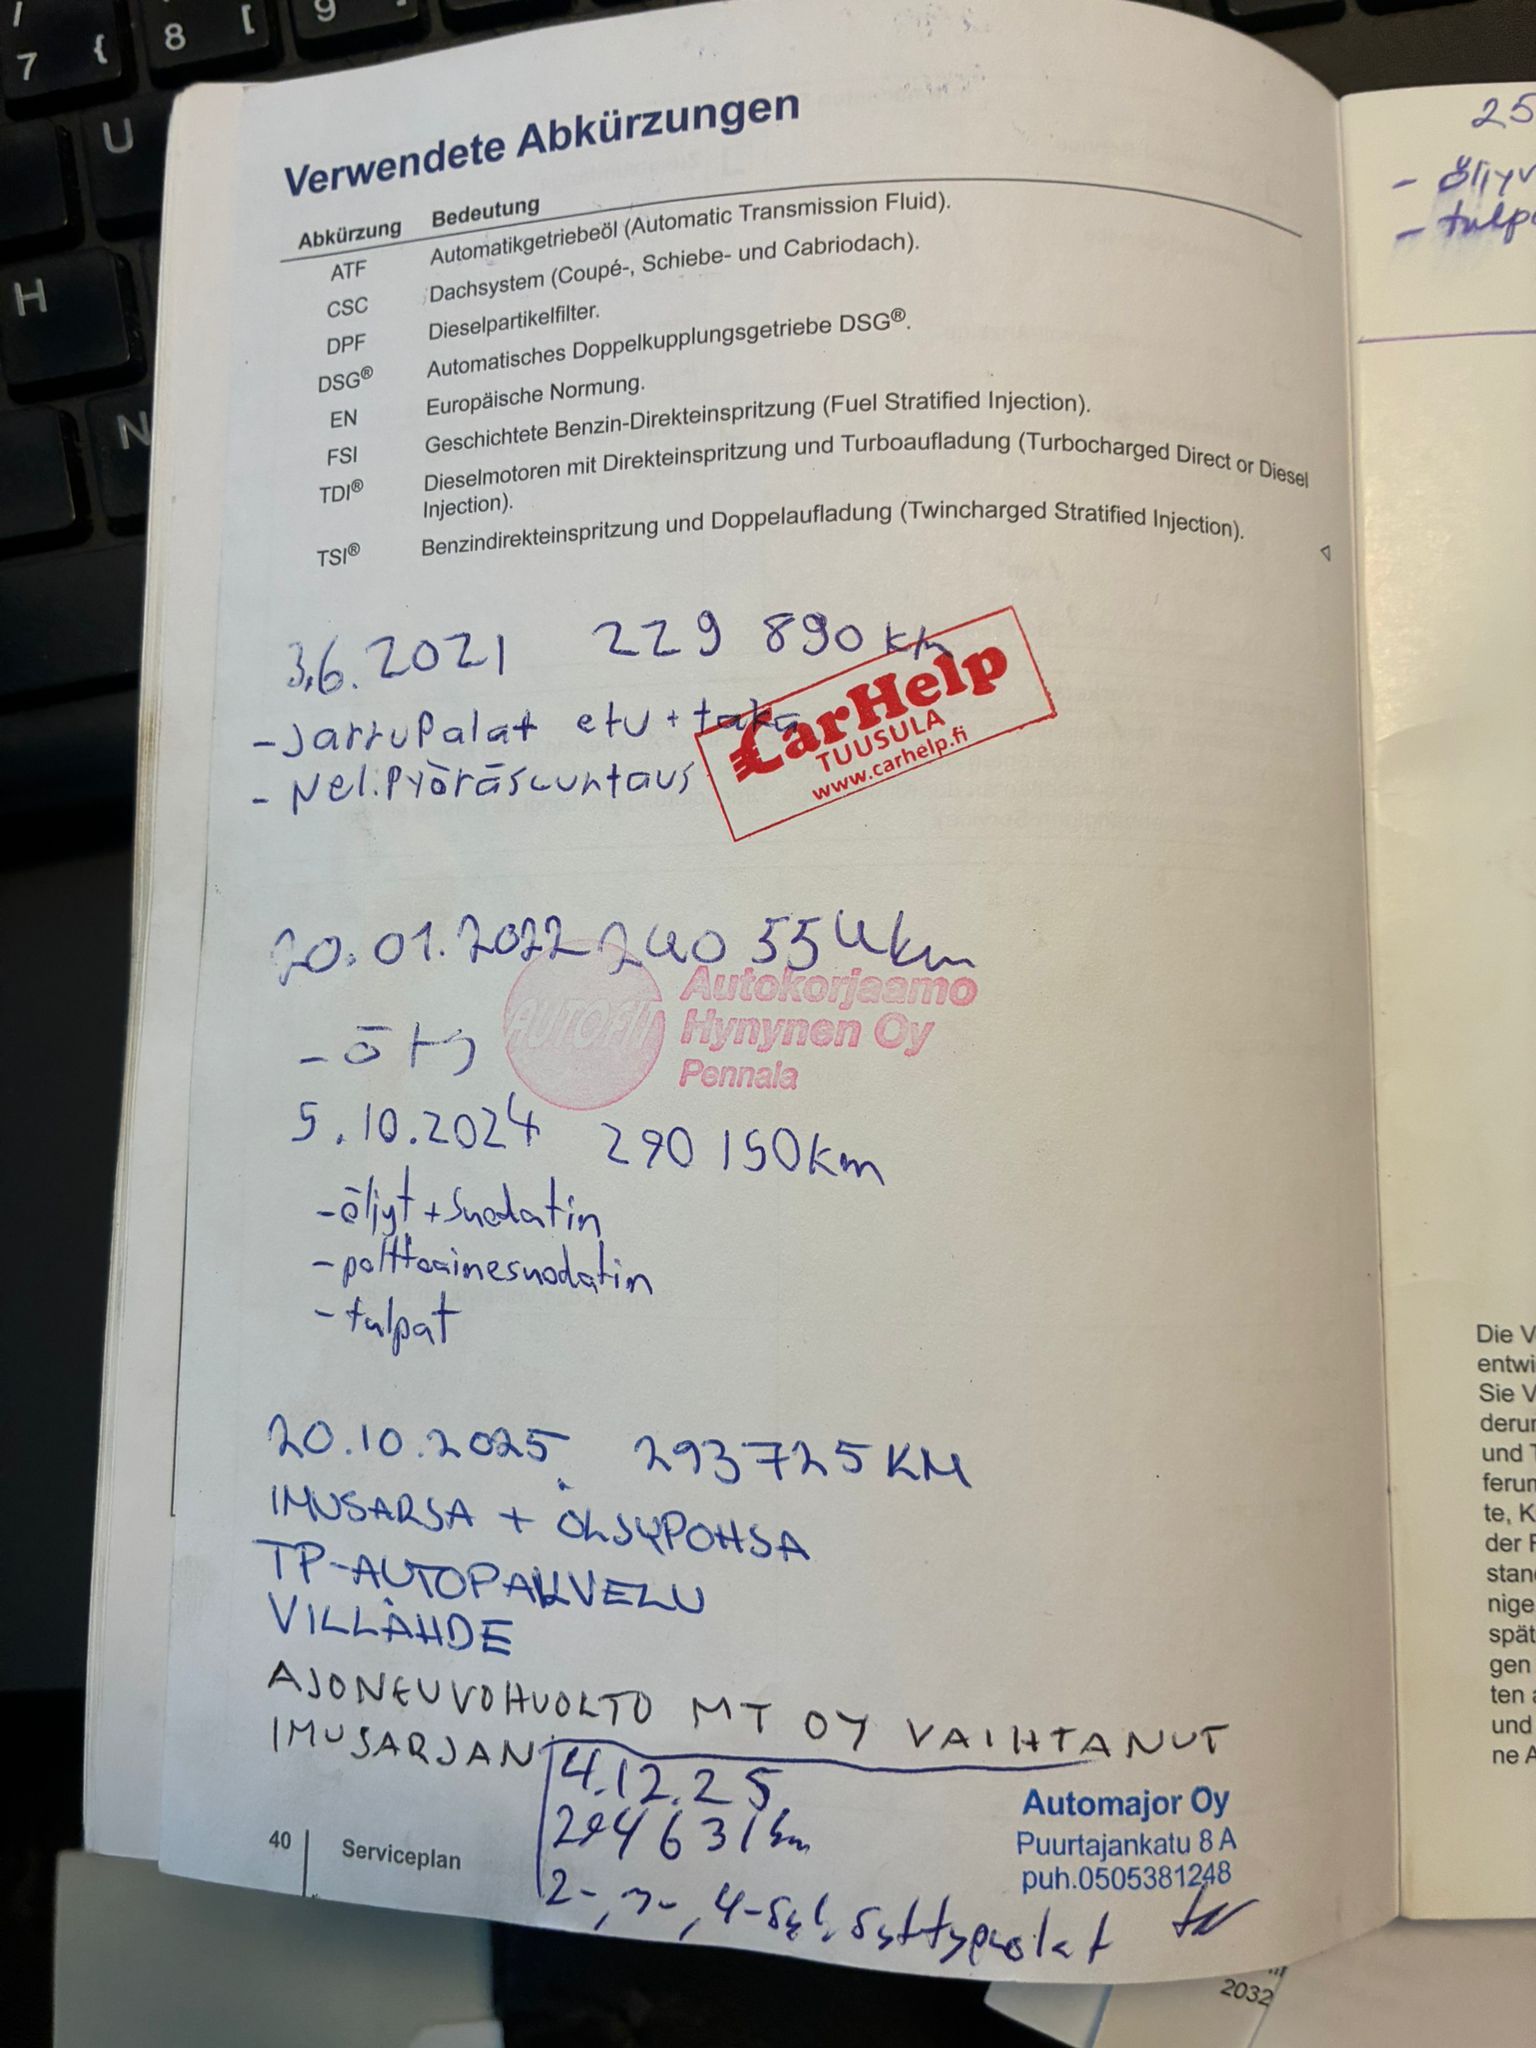 Verwendete Abkürzungen
Abkürzung Bedeutung
ATF Automatikgetriebeöl (Automatic Transmission Fluid).
CSC Dachsystem (Coupé-, Schiebe- und Cabriodach).
DPF Dieselpartikelfilter.
DSG® Automatisches Doppelkupplungsgetriebe DSG®.
EN Europäische Normung.
FSI Geschichtete Benzin-Direkteinspritzung (Fuel Stratified Injection).
TDI® Dieselmotoren mit Direkteinspritzung und Turboaufladung (Turbocharged Direct or Diesel
Injection).
TSI® Benzindirekteinspritzung und Doppelaufladung (Twincharged Stratified Injection).
3.6.2021 229 890 km
- Jarrupalat etu + taka
- Nelipyöräsuuntaus
CarHelp
TUUSULA
www.carhelp.fi
20.01.2022 240 554 km
AUTOFIT
Autokorjaamo
Hynynen Oy
Pennala
5.10.2024 290 150 km
- öljyt + suodatin
- polttoainesuodatin
- tulpat
20.10.2025. 293725 KM
IMUSARJA + ÖLJYPOHJA
TP-AUTOPALVELU
VILLÄHDE
AJONEUVOHUOLTO MT OY VAIHTANUT
IMUSARJAN
4.12.25
294631 km
2-, 3-, 4-syl. sytytyspuolat
Automajor Oy
Puurtajankatu 8 A
puh.0505381248
40 Serviceplan
25
- öljyv
- tulp
Die V
entwi
Sie V
derun
und T
ferum
te, K
der F
stand
nige
spät
gen
ten a
und
ne A
7 {
8 [
9
U
H
N
2032